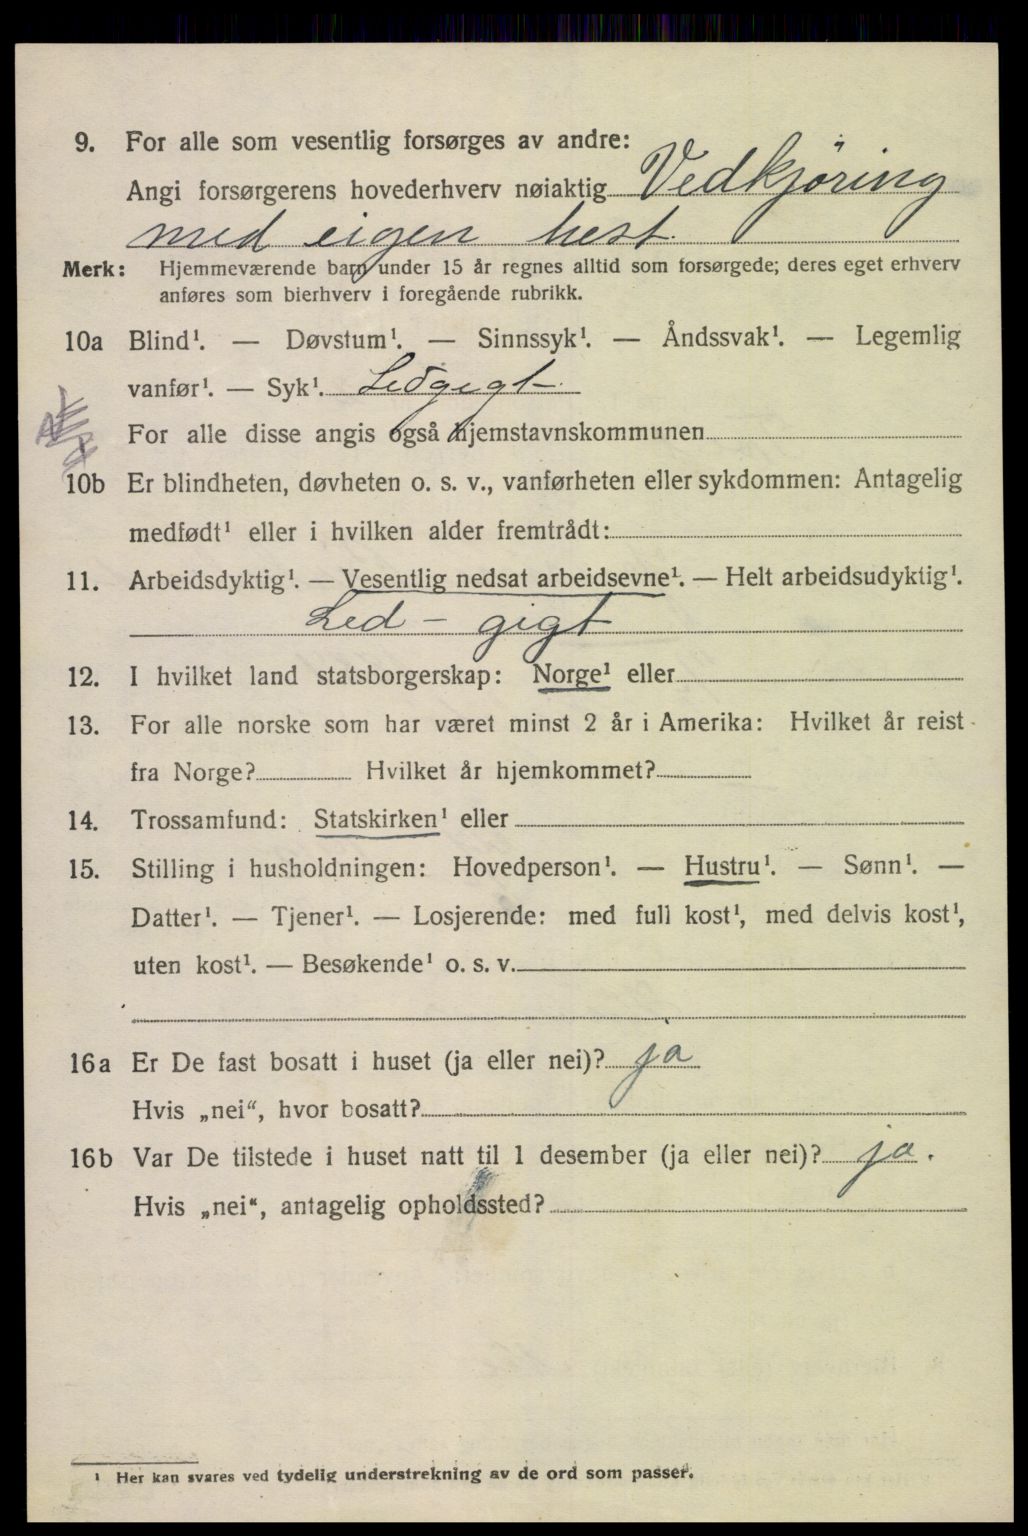 9. For alle som vesentlig forsørges av andre:
Angi forsørgerens hovederhverv nøiaktig Vedkjöring
med eigen hest.
Merk: Hjemmeværende barn under 15 år regnes alltid som forsørgede; deres eget erhverv
anføres som bierhverv i foregående rubrikk.
10a Blind¹. — Døvstum¹. — Sinnssyk¹. — Åndssvak¹. — Legemlig
vanfør¹. — Syk¹. Ledgigt
For alle disse angis også hjemstavnskommunen
10b Er blindheten, døvheten o. s. v., vanførheten eller sykdommen: Antagelig
medfødt¹ eller i hvilken alder fremtrådt:
11. Arbeidsdyktig¹. — Vesentlig nedsat arbeidsevne¹. — Helt arbeidsudyktig¹.
Led – gigt
12. I hvilket land statsborgerskap: Norge¹ eller
13. For alle norske som har været minst 2 år i Amerika: Hvilket år reist
fra Norge? Hvilket år hjemkommet?
14. Trossamfund: Statskirken¹ eller
15. Stilling i husholdningen: Hovedperson¹. — Hustru¹. — Sønn¹. —
Datter¹. — Tjener¹. — Losjerende: med full kost¹, med delvis kost¹,
uten kost¹. — Besøkende¹ o. s. v.
16a Er De fast bosatt i huset (ja eller nei)? ja
Hvis „nei“, hvor bosatt?
16b Var De tilstede i huset natt til 1 desember (ja eller nei)? ja.
Hvis „nei“, antagelig opholdssted?
¹ Her kan svares ved tydelig understrekning av de ord som passer.